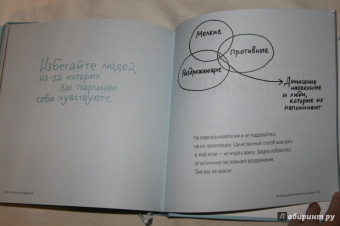 Избегайте людей,
из-за которых
вы паршиво
себя чувствуете
Мелкие
Противные
Раздражающие
Домашние
насекомые
и люди,
которые их
напоминают
Не перезванивайте им и не поддавайтесь
на их провокации. Единственный способ выиграть
в этой игре — не играть вовсе. Заодно избавитесь
от источника постоянного раздражения.
Оно вас не красит.
Лабиринт.ру